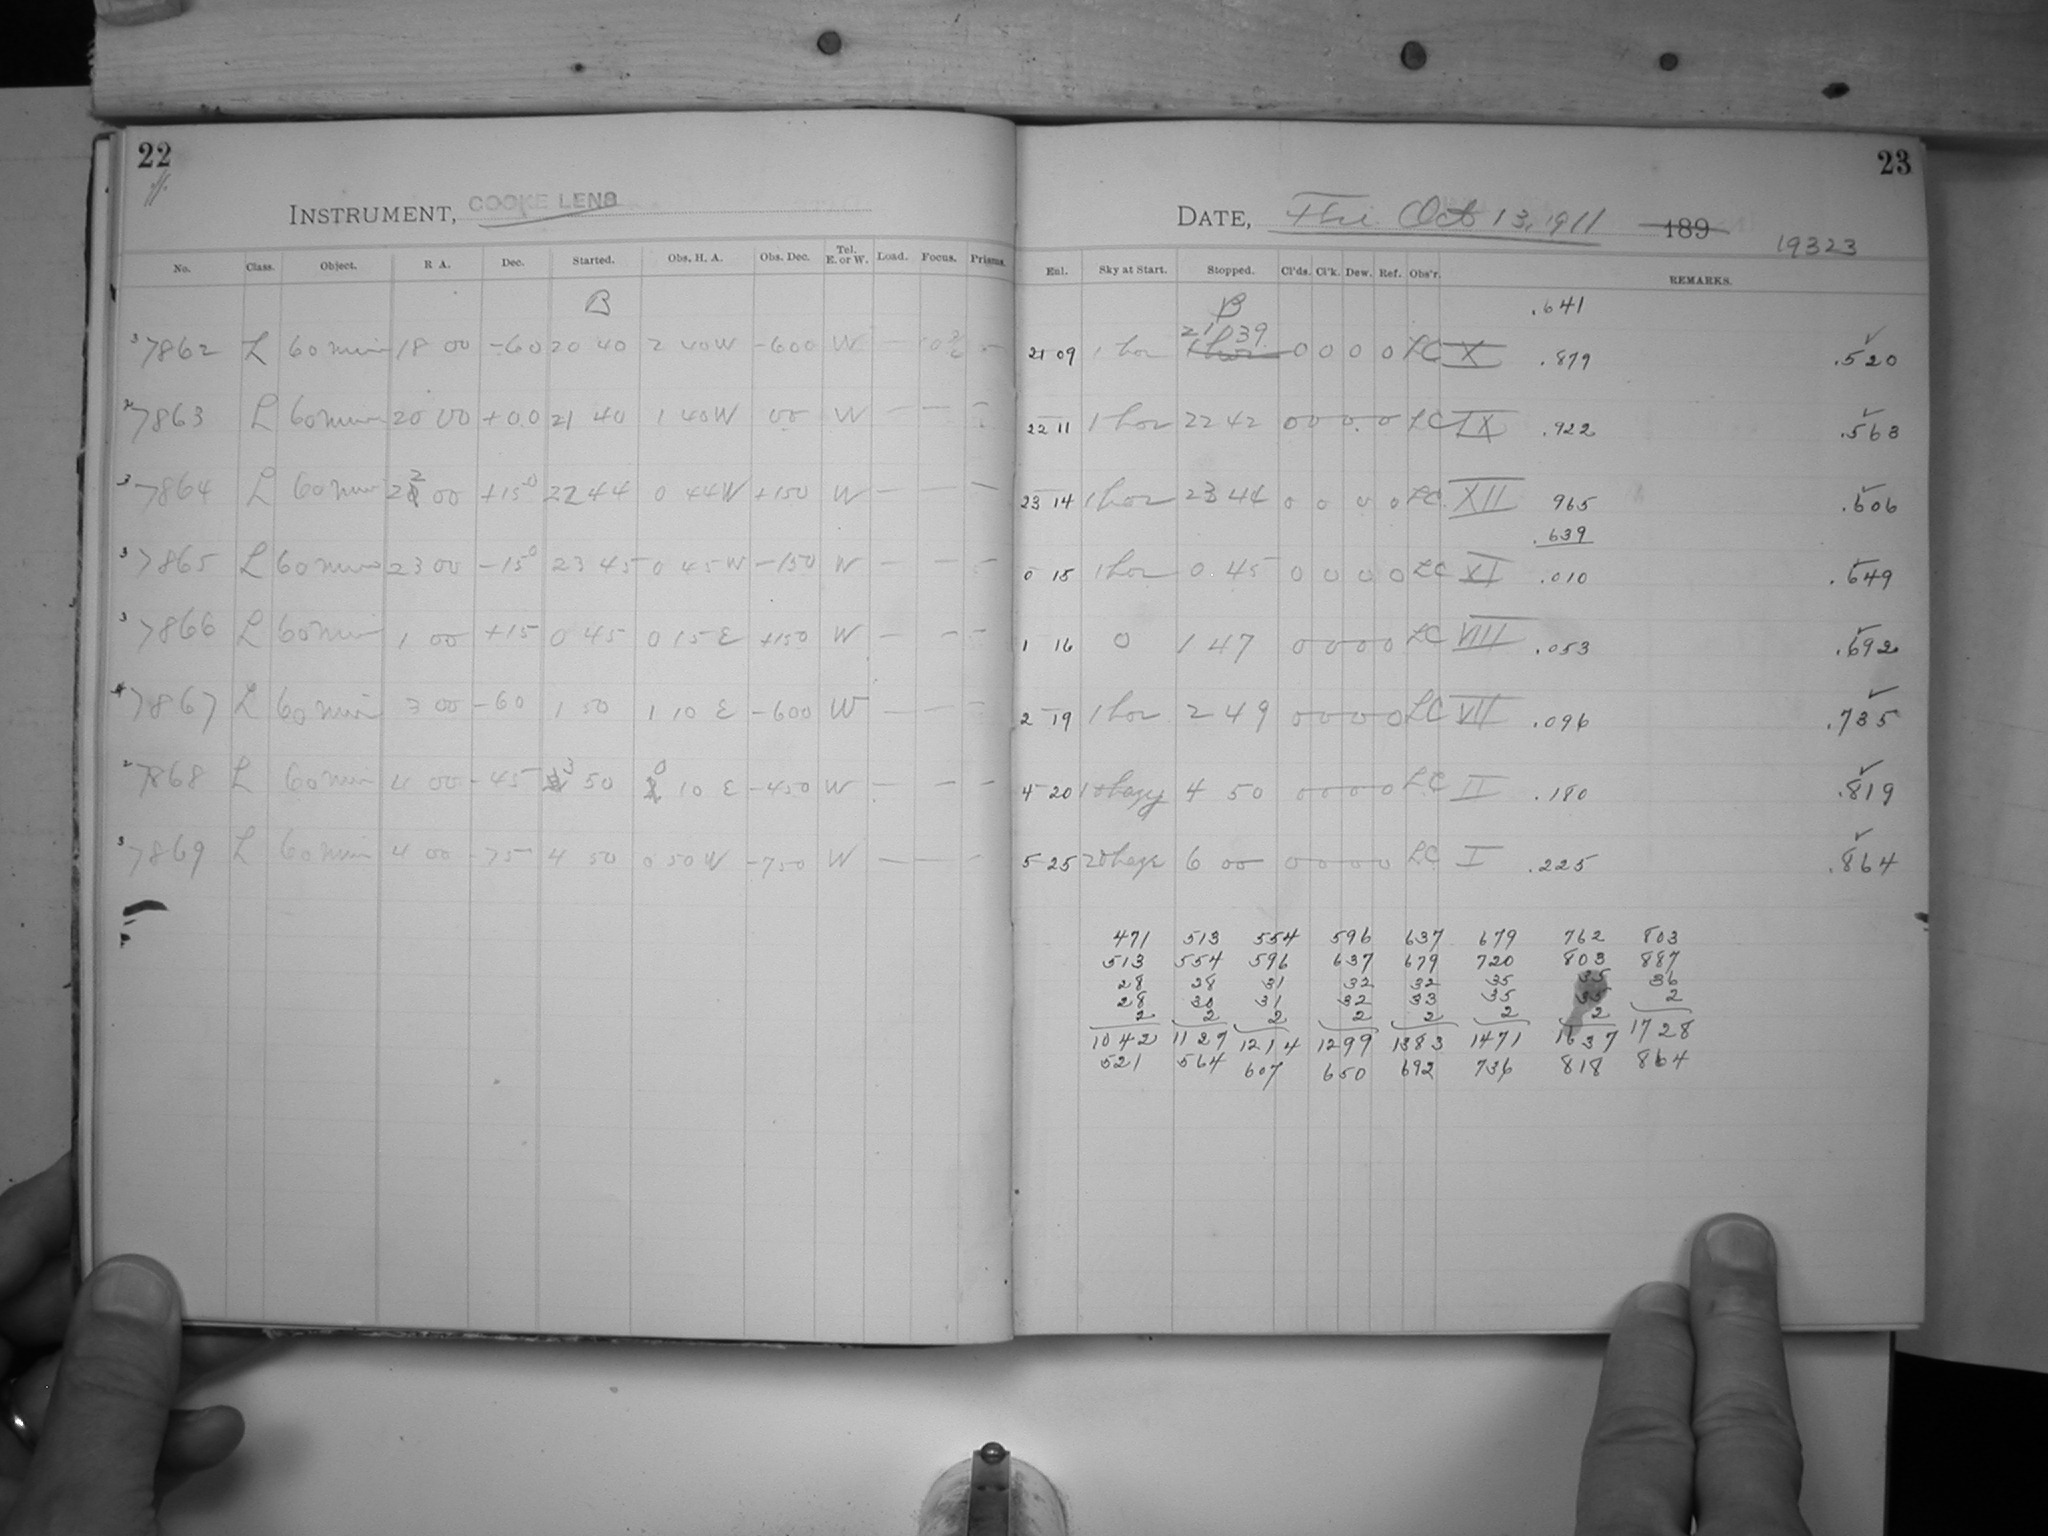 22
INSTRUMENT, COOKE LENS
No. Class. Object. R A. Dec. Started. Obs. H. A. Obs. Dec. Tel. E. or W. Load. Focus. Prisms.
B
3 7862 L 60 min 18 00 -60 20 40 2 40W -600 W — —
2 7863 L 60 min 20 00 +00 21 40 1 40W 00 W — — —
3 7864 L 60 min 22 00 +15 0 22 44 0 44W +150 W — — —
3 7865 L 60 min 23 00 -15 0 23 45 0 45W -150 W — — —
3 7866 L 60 min 1 00 +15 0 45 0 15 E +150 W — — —
4 7867 L 60 min 3 00 -60 1 50 1 10 E -600 W — — —
2 7868 L 60 min 4 00 -45 3 50 0 10 E -450 W — — —
3 7869 L 60 min 4 00 -75 4 50 0 50W -750 W — — —
23
DATE, Fri Oct 13, 1911 189
19323
Enl. Sky at Start. Stopped. Cl'ds. Cl'k. Dew. Ref. Obs'r. REMARKS.
B .641
21 09 1 hor 21 39 0 0 0 0 LC X .879 .520
22 11 1 hor 22 42 0 0 0 0 LC IX .922 .563
23 14 1 hor 23 44 0 0 0 0 LC XII 965 .606
.639
0 15 1 hor 0 45 0 0 0 0 LC XI .010 .649
1 16 0 1 47 0 0 0 0 LC VIII .053 .692
2 19 1 hor 2 49 0 0 0 0 LC VII .096 .735
4 20 10 hazy 4 50 0 0 0 0 LC II .180 .819
5 25 20 haze 6 00 0 0 0 0 LC I .225 .864
471 513 554 596 637 679 762 803
513 554 596 637 679 720 803 887
28 28 31 32 32 35 35 36
28 30 31 32 33 35 35 2
2 2 2 2 2 2 2
1042 1127 1214 1299 1383 1471 1637 1728
521 564 607 650 692 736 818 864